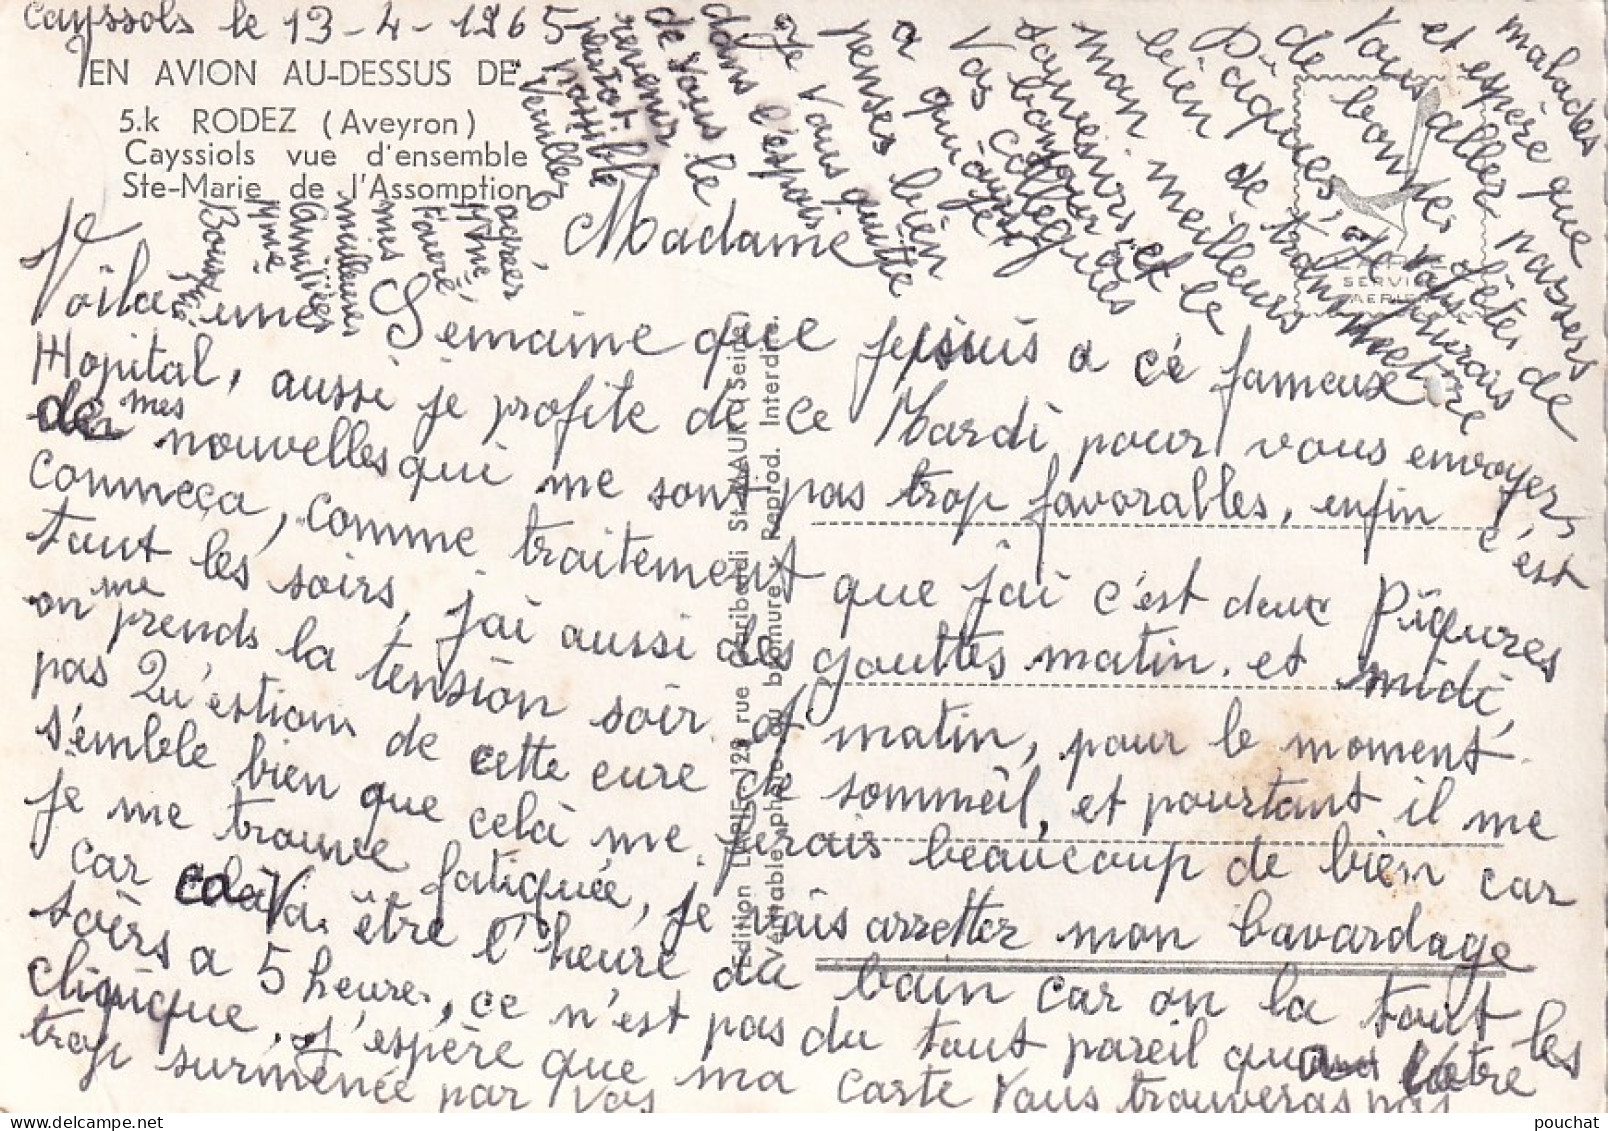 Cayssols le 13-4-1965
EN AVION AU-DESSUS DE
5.k RODEZ (Aveyron)
Cayssiols vue d'ensemble
Ste-Marie de l'Assomption
Madame
Voila une Semaine que je suis a cé fameux
Hopital, aussi je profite de ce Mardi pour vous envoyer
de mes nouvelles qui me sont pas trop favorables, enfin c'est
commeça, comme traitement que j'ai c'est deux Piqures
tout les soirs, j'ai aussi des gouttes matin. et midi,
on me prends la tension soir et matin, pour le moment
pas Qu'estion de cette cure de sommeil, et pourtant il me
s'emble bien que celà me ferais beaucoup de bien car
je me trouve fatiquée, je vais arretter mon bavardage
car celà Va être l'heure du bain car on la tout les
soirs a 5 heures, ce n'est pas du tout pareil qu'au Votre
clinique. J'espère que ma carte Vous trouveras pas
trop surmenée par Vos
malades
et espère que
Vous allez passers
de bonnes fêtes de
Pâques, Je vous
bien de transmettre
mon meilleurs
souvenirs et le
bonjour a
Vos collegues
a qui je
penses bien
Je Vous quitte
dans l'espoir
de Vous le
revenir
plutot
possible
Veuillez
agréer
Mme
Favré
mes
meilleures
Amitiées
Mme
Edition LAPIE, 129 rue Garibaldi St-MAUR (Seine)
Véritable photo au bromure. Reprod. Interdite.
SERVICE
AERIEN
pouchat